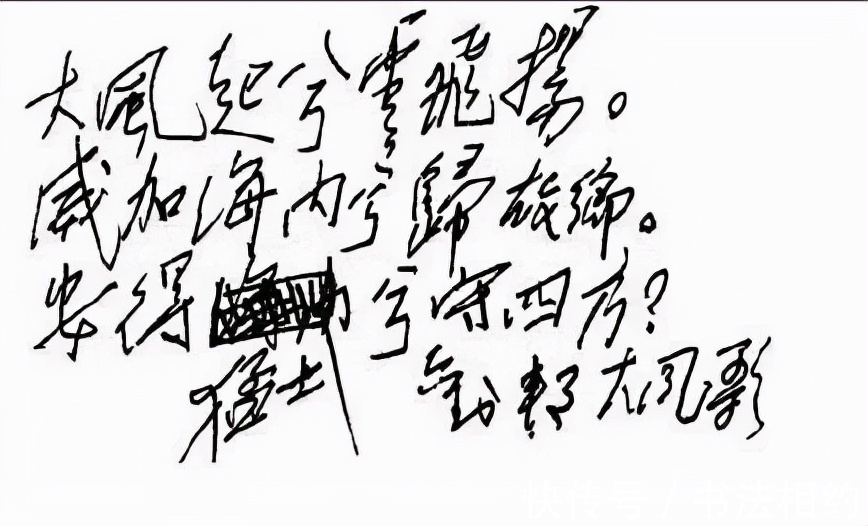 大風起兮雲飛揚。
威加海内兮歸故鄉。
安得兮守四方?
猛士 劉邦大风歌
快传号/书法相约